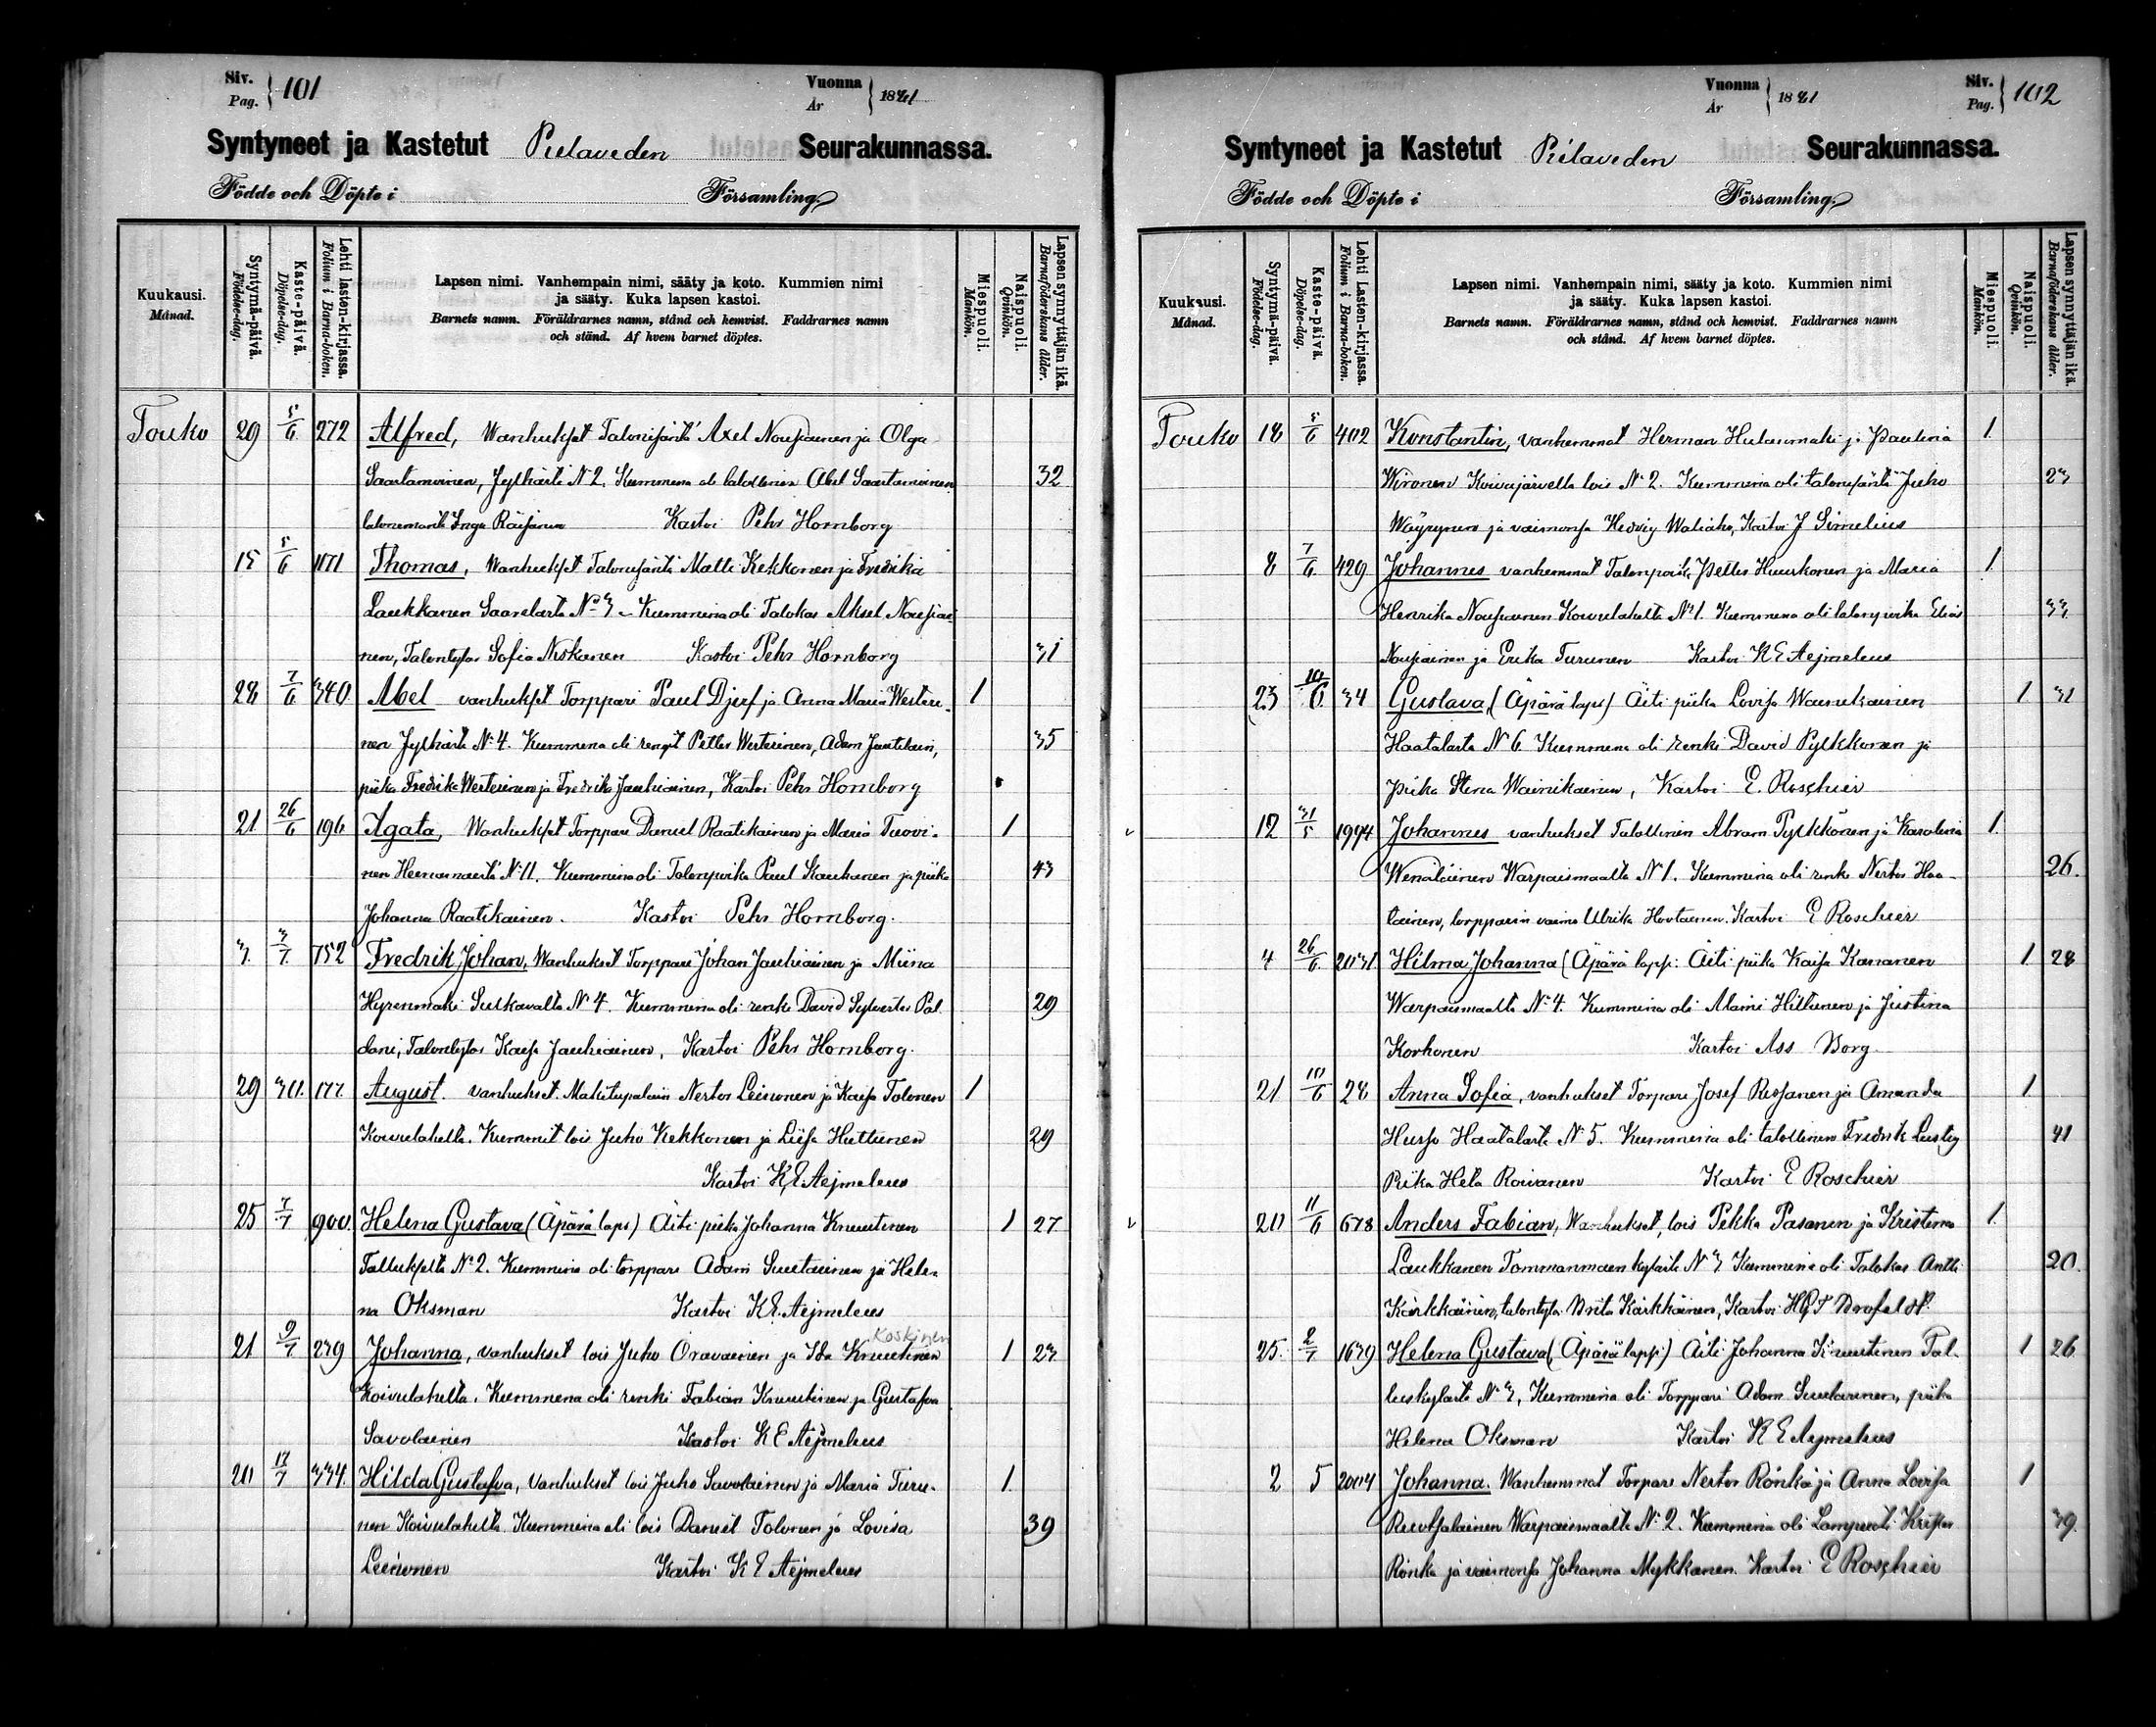 Siv. Pag. } 101
Vuonna År } 1881
Syntyneet ja Kastetut Pielaveden Seurakunnassa.
Födde och Döpte i Församling
Kuukausi. Månad.
Syntymä-päivä. Födelse-dag.
Kaste-päivä. Döpelse-dag.
Lehti lasten-kirjassa. Folium i Barna-boken.
Lapsen nimi. Vanhempain nimi, sääty ja koto. Kummien nimi
ja sääty. Kuka lapsen kastoi.
Barnets namn. Föräldrarnes namn, stånd och hemvist. Faddrarnes namn
och stånd. Af hvem barnet döptes.
Miespuoli. Mankön.
Naispuoli. Qvinkön.
Lapsen synnyttäjän ikä. Barnaföderskans ålder.
Touko 29 5/6 272 Alfred, Wanhukset Talonisäntä Axel Nousiainen ja Olga
Saastamoinen, Jylhästä N 2. Kummina oli talollinen Abel Saastamoinen 32
Inga Räisänen Kastoi Pehr Hornborg
15 5/6 1171 Thomas, Wanhukset Talonisäntä Matti Kekkonen ja Fredrika
Laukkanen Saarelasta No 3 - Kummina oli Talokas Aksel Nousiai-
nen, Talontytär Sofia Niskanen Kastoi Pehr Hornborg 31
28 7/6 340 Abel vanhukset Torppari Paul Djerf ja Anna Maria Westeri- 1
nen Jylhästä N: 4. Kummina oli rengit Petter Westerinen, Adam Jantilain, 35
piika Fredrika Westerinen ja Fredrika Jauhiainen, Kastoi Pehr Hornborg
21 26/6 196 Agata, Wanhukset Torppari Daniel Raatikainen ja Maria Tuovi- 1
nen Heinämäeltä N: 11. Kummina oli Talonpoika Paul Kauhanen ja piika 43
Johanna Raatikainen. Kastoi Pehr Hornborg.
3. 3/7 752 Fredrik Johan, Wanhukset Torppari Johan Jauhiainen ja Miina
Hyvenmäki Sulkavalta N 4. Kummina oli renki David Sylvester Pal 29
dani, Talontytär Kaisa Jauhiainen, Kastoi Pehr Hornborg.
29 30. 177. August. vanhukset Mäkitupalain Nestor Leinonen ja Kaisa Tolonen 1
Koivulahelta. Kummit lois Juho Kekkonen ja Liisa Huttunen 29
Kastoi K. E. Aejmeleus
25 7/7 900. Helena Gustava (Äpärä laps) Äiti piika Johanna Knuutinen 1 27
Tallukselta N: 2. Kummina oli torppari Adam Suutarinen ja Hele-
na Oksman Kastoi K.E. Aejmeleus
Koskinen
21 9/7 239 Johanna, vanhukset lois Juho Oravainen ja Ida Knuutinen 1 23
Koivulahelta, Kummina oli renki Fabian Knuutinen ja Gustafva
Savolainen Kastoi K E Aejmeleus
20 17/7 334. Hilda Gustafva, Vanhukset lois Juho Savolainen ja Maria Turu- 1.
nen Koivulahelta Kummina oli lois Daniel Tolonen ja Lovisa 39
Leinonen Kastoi K E Aejmeleus
Siv. Pag. } 102
Vuonna År } 1881
Syntyneet ja Kastetut Pielaveden Seurakunnassa.
Födde och Döpte i Församling.
Kuukausi. Månad.
Syntymä-päivä. Födelse-dag.
Kaste-päivä. Döpelse-dag.
Lehti Lasten-kirjassa. Folium i Barna-boken.
Lapsen nimi. Vanhempain nimi, sääty ja koto. Kummien nimi
ja sääty. Kuka lapsen kastoi.
Barnets namn. Föräldrarnes namn, stånd och hemvist. Faddrarnes namn
och stånd. Af hvem barnet döptes.
Miespuoli. Mankön.
Naispuoli. Qvinkön.
Lapsen synnyttäjän ikä. Barnaföderskans ålder.
Touko 18 5/6 402 Konstantin, vanhemmat Herman Hutanmäki ja Paulina 1.
Wironen Koivujärveltä lois N: 2. Kummina oli talonisäntä Juho 23
Wäyrynen ja vaimonsa Hedvig Waliaho, Kastoi J Simelius
8 7/6 429 Johannes vanhemmat Talonpoik. Petter Huuskonen ja Maria 1.
Henrika Nousiainen Koivulahelta N: 1. Kummina oli talonpoika Elias 33.
Nousiainen ja Erika Turunen Kastoi K E Aejmeleus
23 10/6 34 Gustava, (Äpärä laps) Äiti piika Lovisa Wainikainen 1 31
Haatalasta N 6. Kummina oli renki David Pylkkönen ja
Piika Stina Wainikainen, Kastoi E. Roschier
12 31/5 1994 Johannes vanhukset Talollinen Abram Pylkkönen ja Karolina 1.
Wenäläinen Warpaismaalta N 1. Kummina oli renki Nestor Hoo- 26.
tainen, torpparin vaimo Ulrika Hootainen. Kastoi E Roschier
4 26/6 2031 Hilma Johanna (Äpärä lapsi. Äiti piika Kaisa Kananen 1. 28
Warpaismaalta N: 4. Kummina oli Manni Hiltunen ja Justina
Korhonen Kastoi Ass Borg.
21 10/6 28 Anna Sofia, vanhukset Torpari Josef Rissanen ja Amanda 1
Husso Haatalasta N: 5. Kummina oli talollinen Fredrik Lustig 41
Piika Heta Roivanen Kastoi E Roschier
20 11/6 678 Anders Fabian, Wanhukset, lois Pekka Pasanen ja Kristina 1.
Laukkanen Tommanmäen kylästä N: 3 Kummina oli Talokas Antti 20.
Kärkkäinen, talontytär Brita Kärkkäinen, Kastoi
25. 2/7 1639 Helena Gustava (Äpärä lapsi) Äiti Johanna Knuutinen Tal- 1 26
luskylästä N: 3, Kummina oli Torppari Adam Suutarinen, piika
Helena Oksman Kastoi K E Aejmeleus
2 5 2004 Johanna. Wanhemmat Torpari Nestor Rönkä ja Anna Lovisa 1
Ruotsalainen Warpaismaalta N: 2. Kummina oli Lampuoti Krister 39.
Rönkä ja vaimonsa Johanna Mykkänen. Kastoi E Roschier